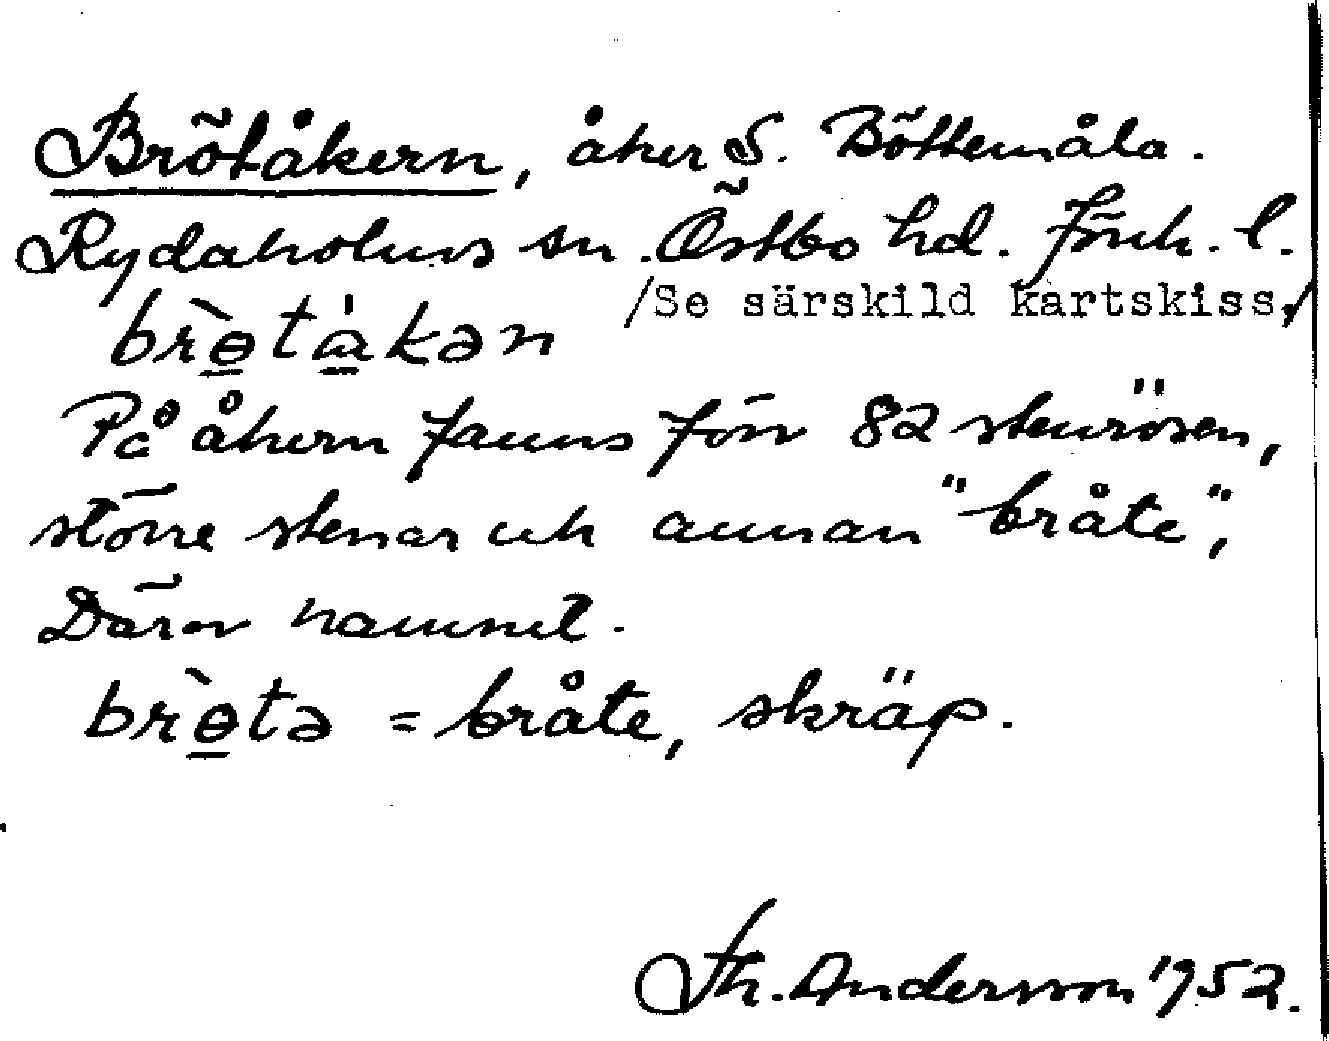 Brötåkern, åker S. Böttemåla.
Rydaholms sn. Östbo hd. Jönk. l.
/Se särskild kartskiss./
brɵ̀tåkən
På åkern fanns förr 82 stenrösen,
större stenar och annan "bråte",
Därav namnet.
brɵ̀tə = bråte, skräp.
Th. Andersson 1952.